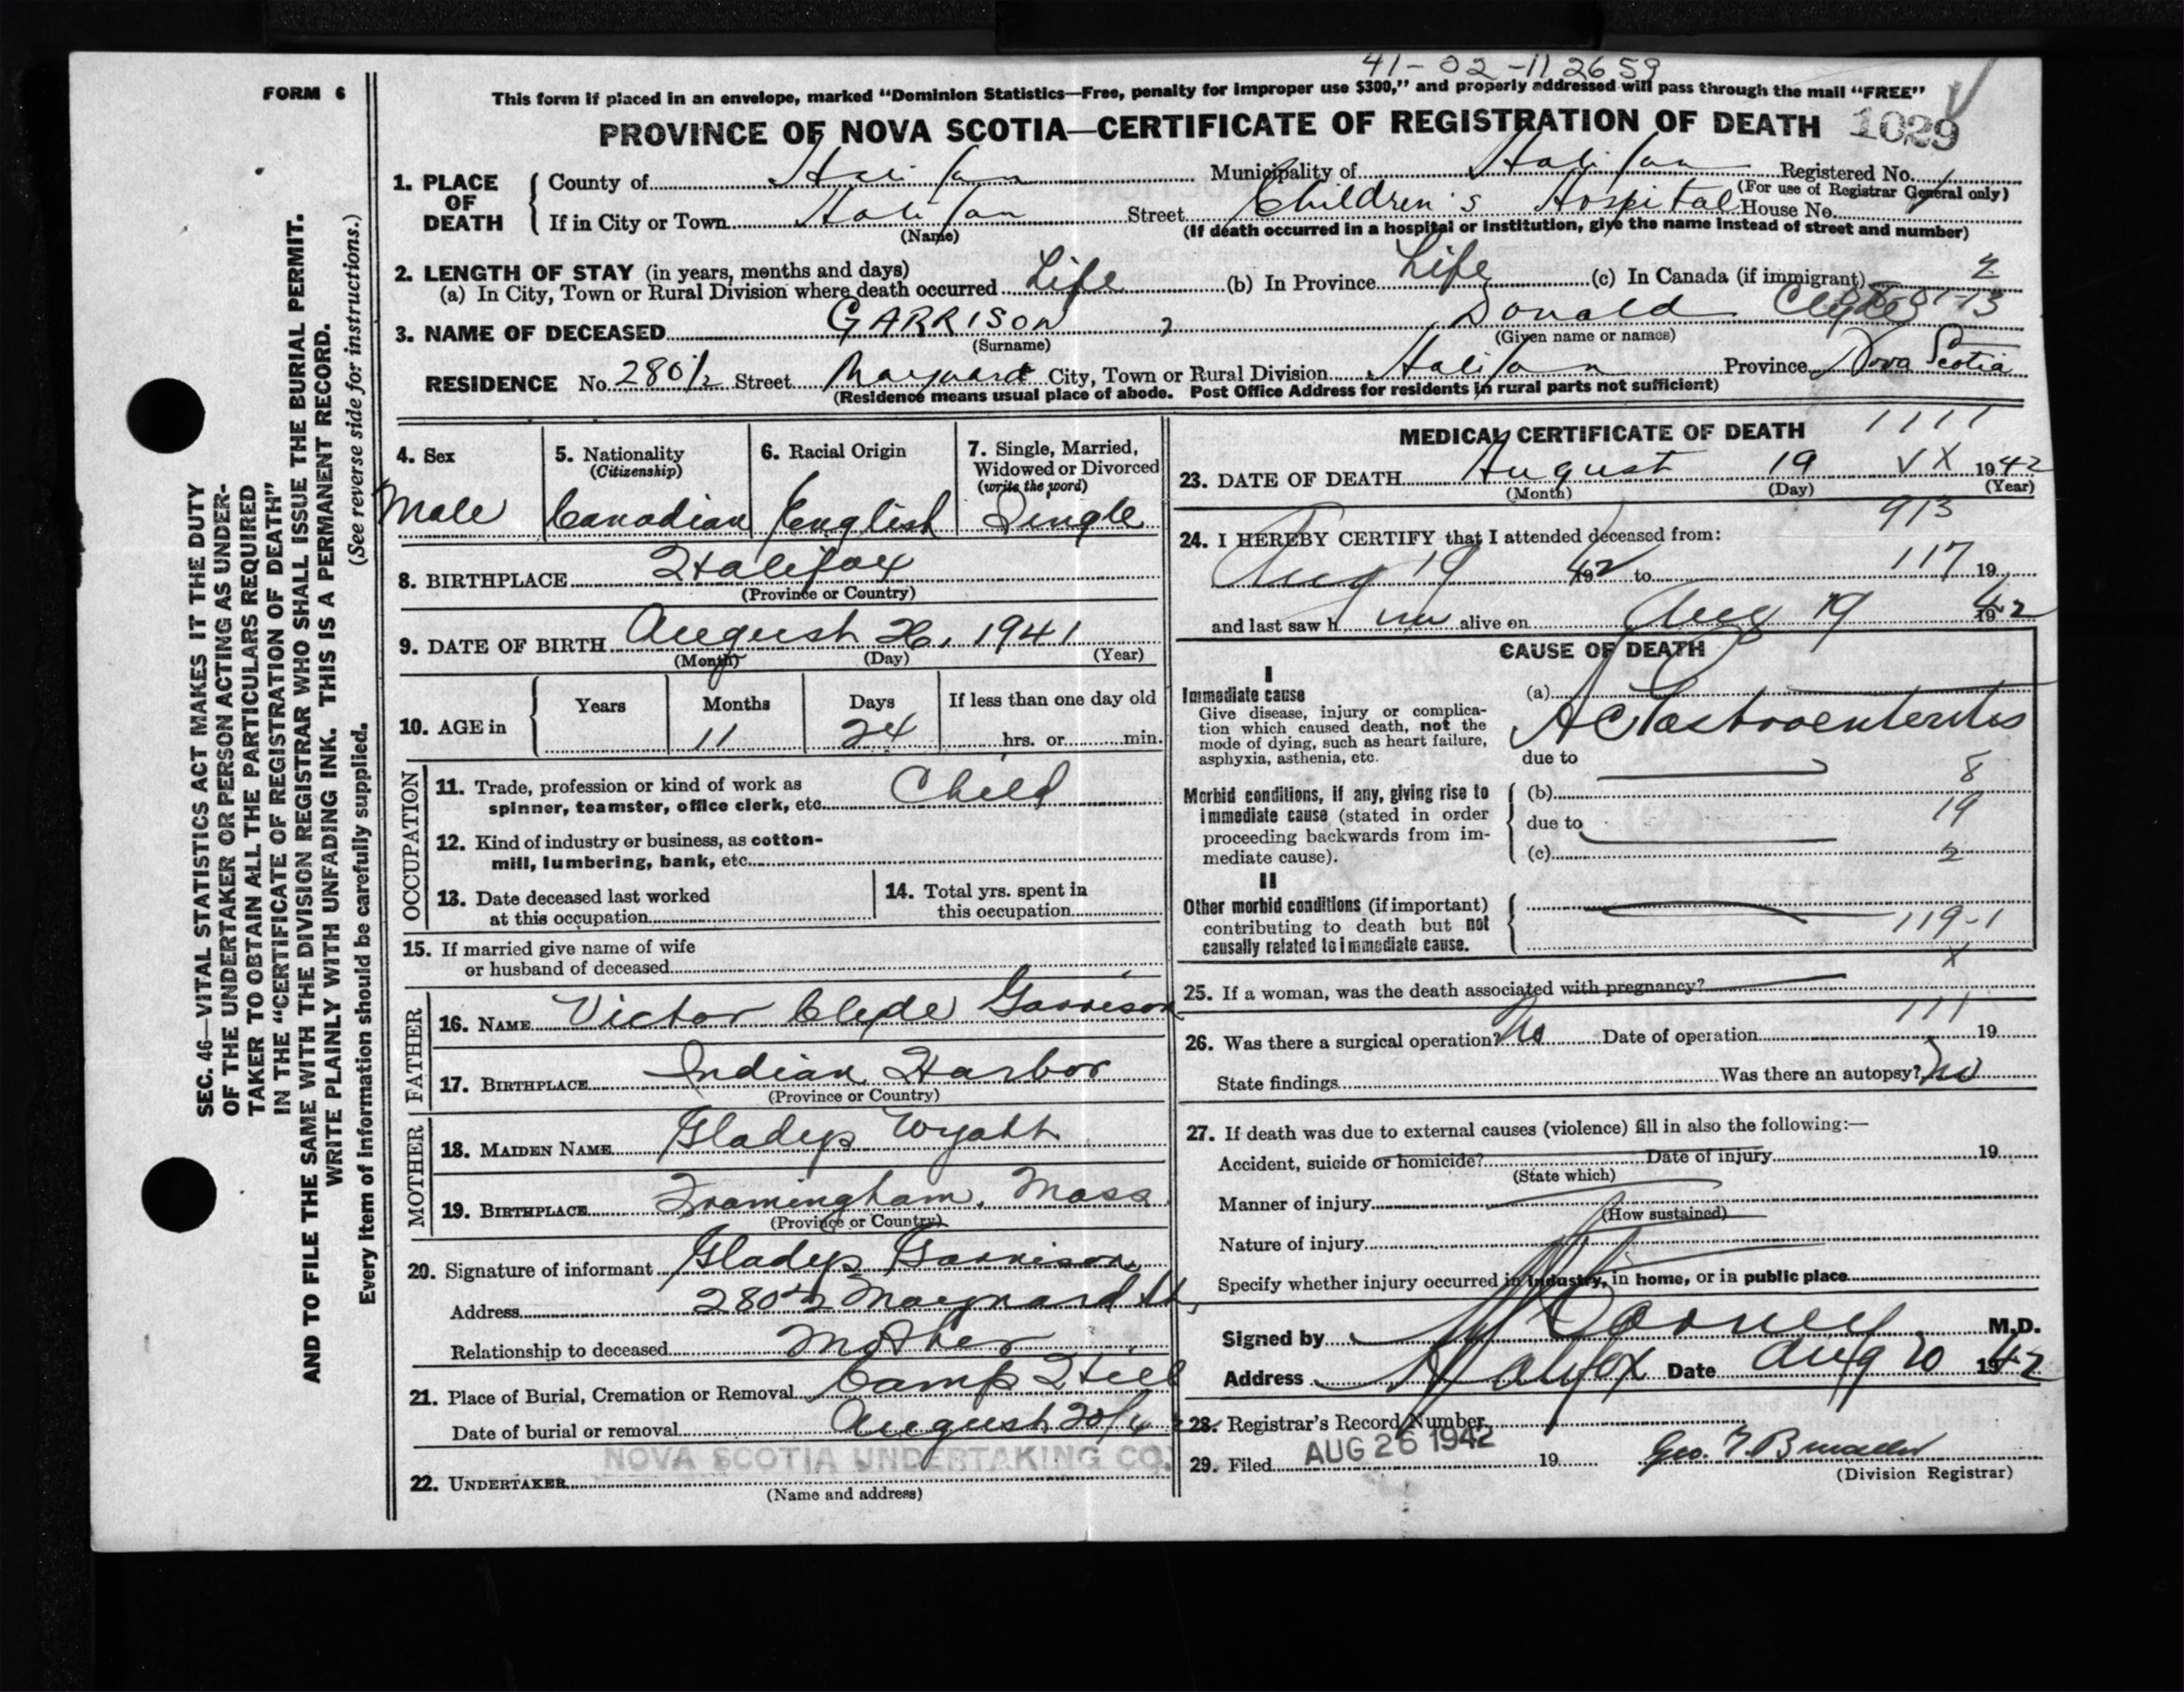 41-02-112659
FORM 6
This form if placed in an envelope, marked "Dominion Statistics—Free, penalty for improper use $300," and properly addressed will pass through the mail "FREE"
PROVINCE OF NOVA SCOTIA—CERTIFICATE OF REGISTRATION OF DEATH 1029
1. PLACE OF DEATH { County of Halifax Municipality of Halifax Registered No.
(For use of Registrar General only)
If in City or Town Halifax Street Children's Hospital House No.
(Name) (If death occurred in a hospital or institution, give the name instead of street and number)
2. LENGTH OF STAY (in years, months and days)
(a) In City, Town or Rural Division where death occurred Life (b) In Province Life (c) In Canada (if immigrant) 2
3. NAME OF DECEASED GARRISON, Donald Clyde
(Surname) (Given name or names)
RESIDENCE No. 280½ Street Maynard City, Town or Rural Division Halifax Province Nova Scotia
(Residence means usual place of abode. Post Office Address for residents in rural parts not sufficient)
SEC. 46—VITAL STATISTICS ACT MAKES IT THE DUTY
OF THE UNDERTAKER OR PERSON ACTING AS UNDER-
TAKER TO OBTAIN ALL THE PARTICULARS REQUIRED
IN THE "CERTIFICATE OF REGISTRATION OF DEATH"
AND TO FILE THE SAME WITH THE DIVISION REGISTRAR WHO SHALL ISSUE THE BURIAL PERMIT.
WRITE PLAINLY WITH UNFADING INK. THIS IS A PERMANENT RECORD.
Every item of information should be carefully supplied. (See reverse side for instructions.)
4. Sex 5. Nationality 6. Racial Origin 7. Single, Married,
(Citizenship) Widowed or Divorced
(write the word)
Male Canadian English Single
8. BIRTHPLACE Halifax
(Province or Country)
9. DATE OF BIRTH August 26, 1941
(Month) (Day) (Year)
10. AGE in { Years Months Days If less than one day old
11 24 hrs. or min.
OCCUPATION
11. Trade, profession or kind of work as
spinner, teamster, office clerk, etc. Child
12. Kind of industry or business, as cotton-
mill, lumbering, bank, etc.
13. Date deceased last worked
at this occupation
14. Total yrs. spent in
this occupation
15. If married give name of wife
or husband of deceased
FATHER
16. NAME Victor Clyde Garrison
17. BIRTHPLACE Indian Harbor
(Province or Country)
MOTHER
18. MAIDEN NAME Gladys Wyatt
19. BIRTHPLACE Framingham, Mass.
(Province or Country)
20. Signature of informant Gladys Garrison
Address 280½ Maynard St,
Relationship to deceased Mother
21. Place of Burial, Cremation or Removal Camp Hill
Date of burial or removal August 20/42
NOVA SCOTIA UNDERTAKING CO.
22. UNDERTAKER
(Name and address)
MEDICAL CERTIFICATE OF DEATH 1111
23. DATE OF DEATH August 19 VX 1942
(Month) (Day) (Year)
913
24. I HEREBY CERTIFY that I attended deceased from:
Aug 19 42 to 117 19
and last saw h im alive on Aug 19 1942
CAUSE OF DEATH
I
Immediate cause
Give disease, injury or complica-
tion which caused death, not the
mode of dying, such as heart failure,
asphyxia, asthenia, etc.
(a) Ac Gastroenteritis
due to
8
Morbid conditions, if any, giving rise to
immediate cause (stated in order
proceeding backwards from im-
mediate cause).
(b)
19
due to
(c) 2
II
Other morbid conditions (if important)
contributing to death but not
causally related to immediate cause.
119-1
X
25. If a woman, was the death associated with pregnancy?
111
26. Was there a surgical operation? No Date of operation 19
State findings Was there an autopsy? No
27. If death was due to external causes (violence) fill in also the following:—
Accident, suicide or homicide? Date of injury 19
(State which)
Manner of injury
(How sustained)
Nature of injury
Specify whether injury occurred in industry, in home, or in public place
Signed by M.D.
Address Halifax Date Aug 20 1942
28. Registrar's Record Number
29. Filed AUG 26 1942 19
(Division Registrar)